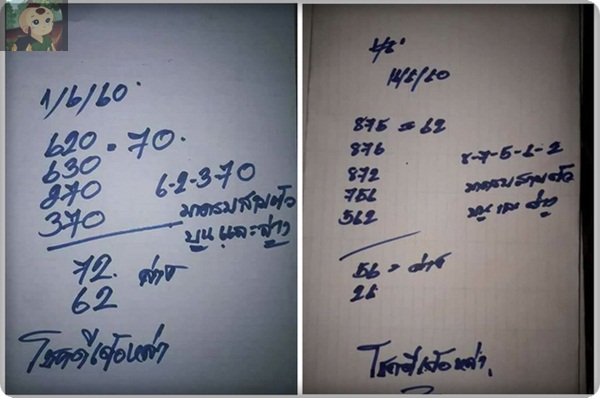 1/6/60.
620 = 70.
630
270
370
6-2-3-70
มาครบสามตัว
บน และล่าง
72. ล่าง
62
โชคดีเจ้อหล่า
16/6/60
875 = 62
876
872
756
562
8-7-5-6-2
มาครบสามตัว
บน และ ล่าง
56 = ล่าง
26
โชคดีเจ้อหล่า